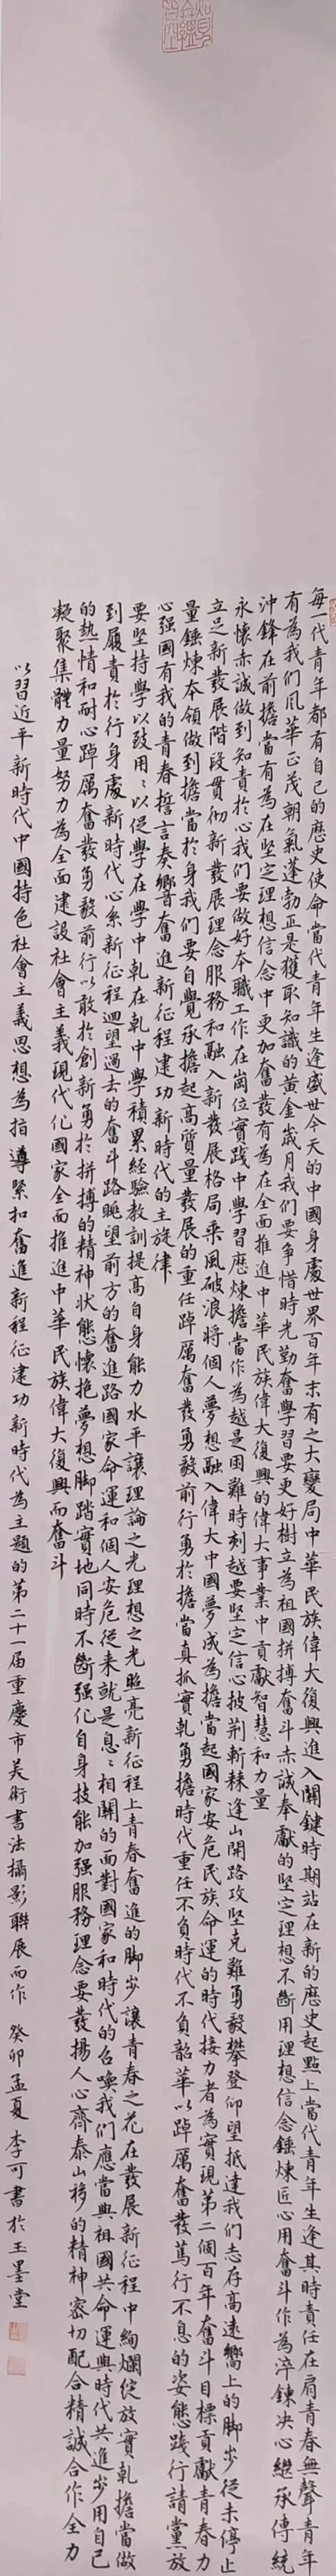 每一代青年都有自己的歷史使命當代青年生逢盛世今天的中國身處世界百年未有之大變局中華民族偉大復興進入關鍵時期站在新的歷史起點上當代青年生逢其時責任在肩青春無聲青年
有為我們風華正茂朝氣蓬勃正是獲取知識的黃金歲月我們要爭惜時光勤奮學習要更好樹立為祖國拼搏奮斗赤誠奉獻的堅定理想不斷用理想信念錘煉匠心用奮斗作為淬鍊决心繼承傳統
沖鋒在前擔當有為在堅定理想信念中更加奮發有為在全面推進中華民族偉大復興的偉大事業中貢獻智慧和力量
永懷赤誠做到知責於心我們要做好本職工作在崗位實踐中學習應煉擔當作為越是困難時刻越要堅定信心披荆斬棘逢山開路攻堅克難勇毅攀登仰望抵達我們志存高遠嚮上的脚步從未停止
立足新發展階段貫彻新發展理念服務和融入新發展格局乘風破浪將個人夢想融入偉大中國夢成為擔當起國家安危民族命運的時代接力者為實現第二個百年奮斗目標貢獻青春力
量錘煉本領做到擔當於身我們要自覺承擔起高質量發展的重任踔厲奮發勇毅前行勇於擔當真抓實乹勇擔時代重任不負時代不負韶華以踔厲奮發篤行不息的姿態踐行請黨放
心强國有我的青春誓言奏響奮進新征程建功新時代的主旋律
要堅持學以致用：以促學在學中乹在乹中學積累經驗教訓提高自身能力水平讓理論之光理想之光照亮新征程上青春奮進的脚步讓青春之花在發展新征程中絢爛綻放實乹擔當做
到履責於行身處新時代心系新征程迴望過去的奮斗路眺望前方的奮進路國家命運和個人安危從来就是息：相關的面對國家和時代的召喚我們應當與祖國共命運與時代共進步用自己
的熱情和耐心踔厲奮發勇毅前行以敢於創新勇於拼搏的精神状態懷抱夢想脚踏實地同時不斷强化自身技能加强服務理念要發揚人心齊泰山移的精神密切配合精誠合作全力
凝聚集體力量努力為全面建設社會主義現代化國家全面推進中華民族偉大復興而奮斗
以習近平新時代中國特色社會主義思想為指導緊扣奮進新程征建功新時代為主題的第二十一届重慶市美術書法攝影聯展而作 癸卯孟夏李可書於玉墨堂